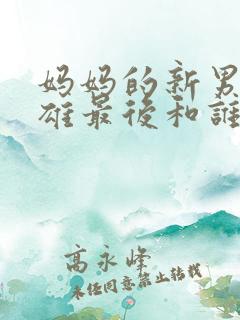 妈妈的新男
雄最後和誰
高永峰
未任同意禁止转载